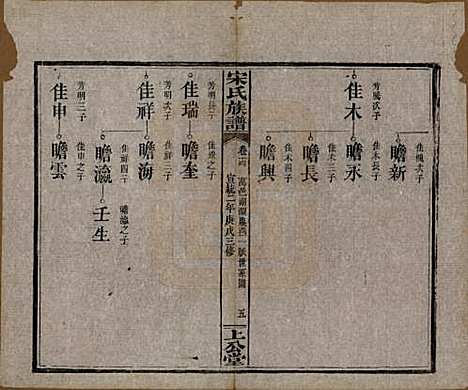 佳槐次子
瞻新
芳騰次子
佳木
佳木次子
瞻永
佳木三子
瞻長
佳木四子
瞻興
宋氏族譜
卷十四
宣統二年庚戌三修
五
上公堂
芳明長子
佳瑞
佳瑞之子
瞻奎
芳明次子
佳祥
佳祥三子
瞻海
佳祥四子
瞻瀛
瞻瀛之子
壬生
芳明三子
佳申
佳申之子
瞻雲